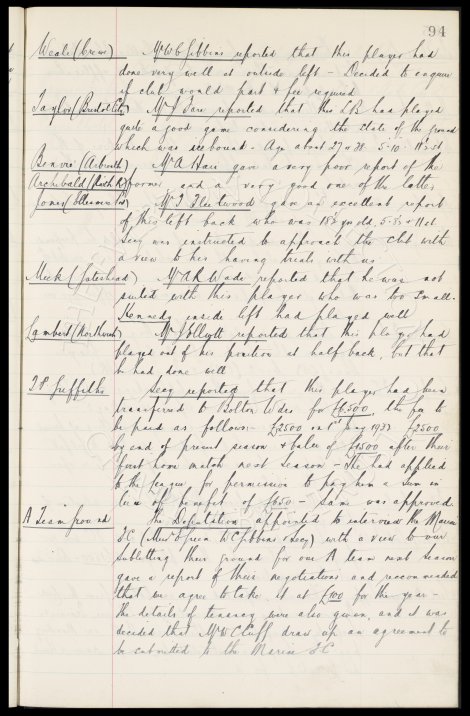 94
Weale (Crewe) Mr W C Gibbins reported that this player had
done very well at outside left - Decided to enquire
if club would part & fee required
Taylor (Bristol City) Mr J Fare reported that this LB had played
quite a good game considering the state of the ground
which was icebound - Age about 27 or 28 5-10
Mr A Hair gave a very poor report of the
Archibald (Raith R) former and a very good one of the latter
Jones (Ellesmere Port) Mr J Fleetwood gave an excellent report
of this left back who was 18½ yrs old, 5-8½ & 11 st
Secy was instructed to approach the club with
a view to his having trials with us
Meek (Gateshead) Mr A R Wade reported that he was not
suited with this player who was too small -
Kennedy inside left had played well
Lambert (Northwich) Mr J Elliott reported that this player had
played out of his position at half back, but that
he had done well
T P Griffiths Secy reported that this player had been
transferred to Bolton Wdrs for £6500 the fee to
be paid as follows - £2500 on 1st May 1933 £2500
by end of present season & balce of £1500 after their
first home match next season - He had applied
to the League for permission to pay him a sum in
lieu of benefit of £650 - Same was approved.
A Team ground The Deputation appointed to interview the Marine
F.C (Messrs Green W C Gibbins & Secy) with a view to our
subletting their ground for our A team next season
gave a report of their negotiations and recommended
that we agree to take it at £100 for the year -
the details of tenancy were also given, and it was
decided that Mr W C Cuff draw up an agreement to
be submitted to the Marine F.C